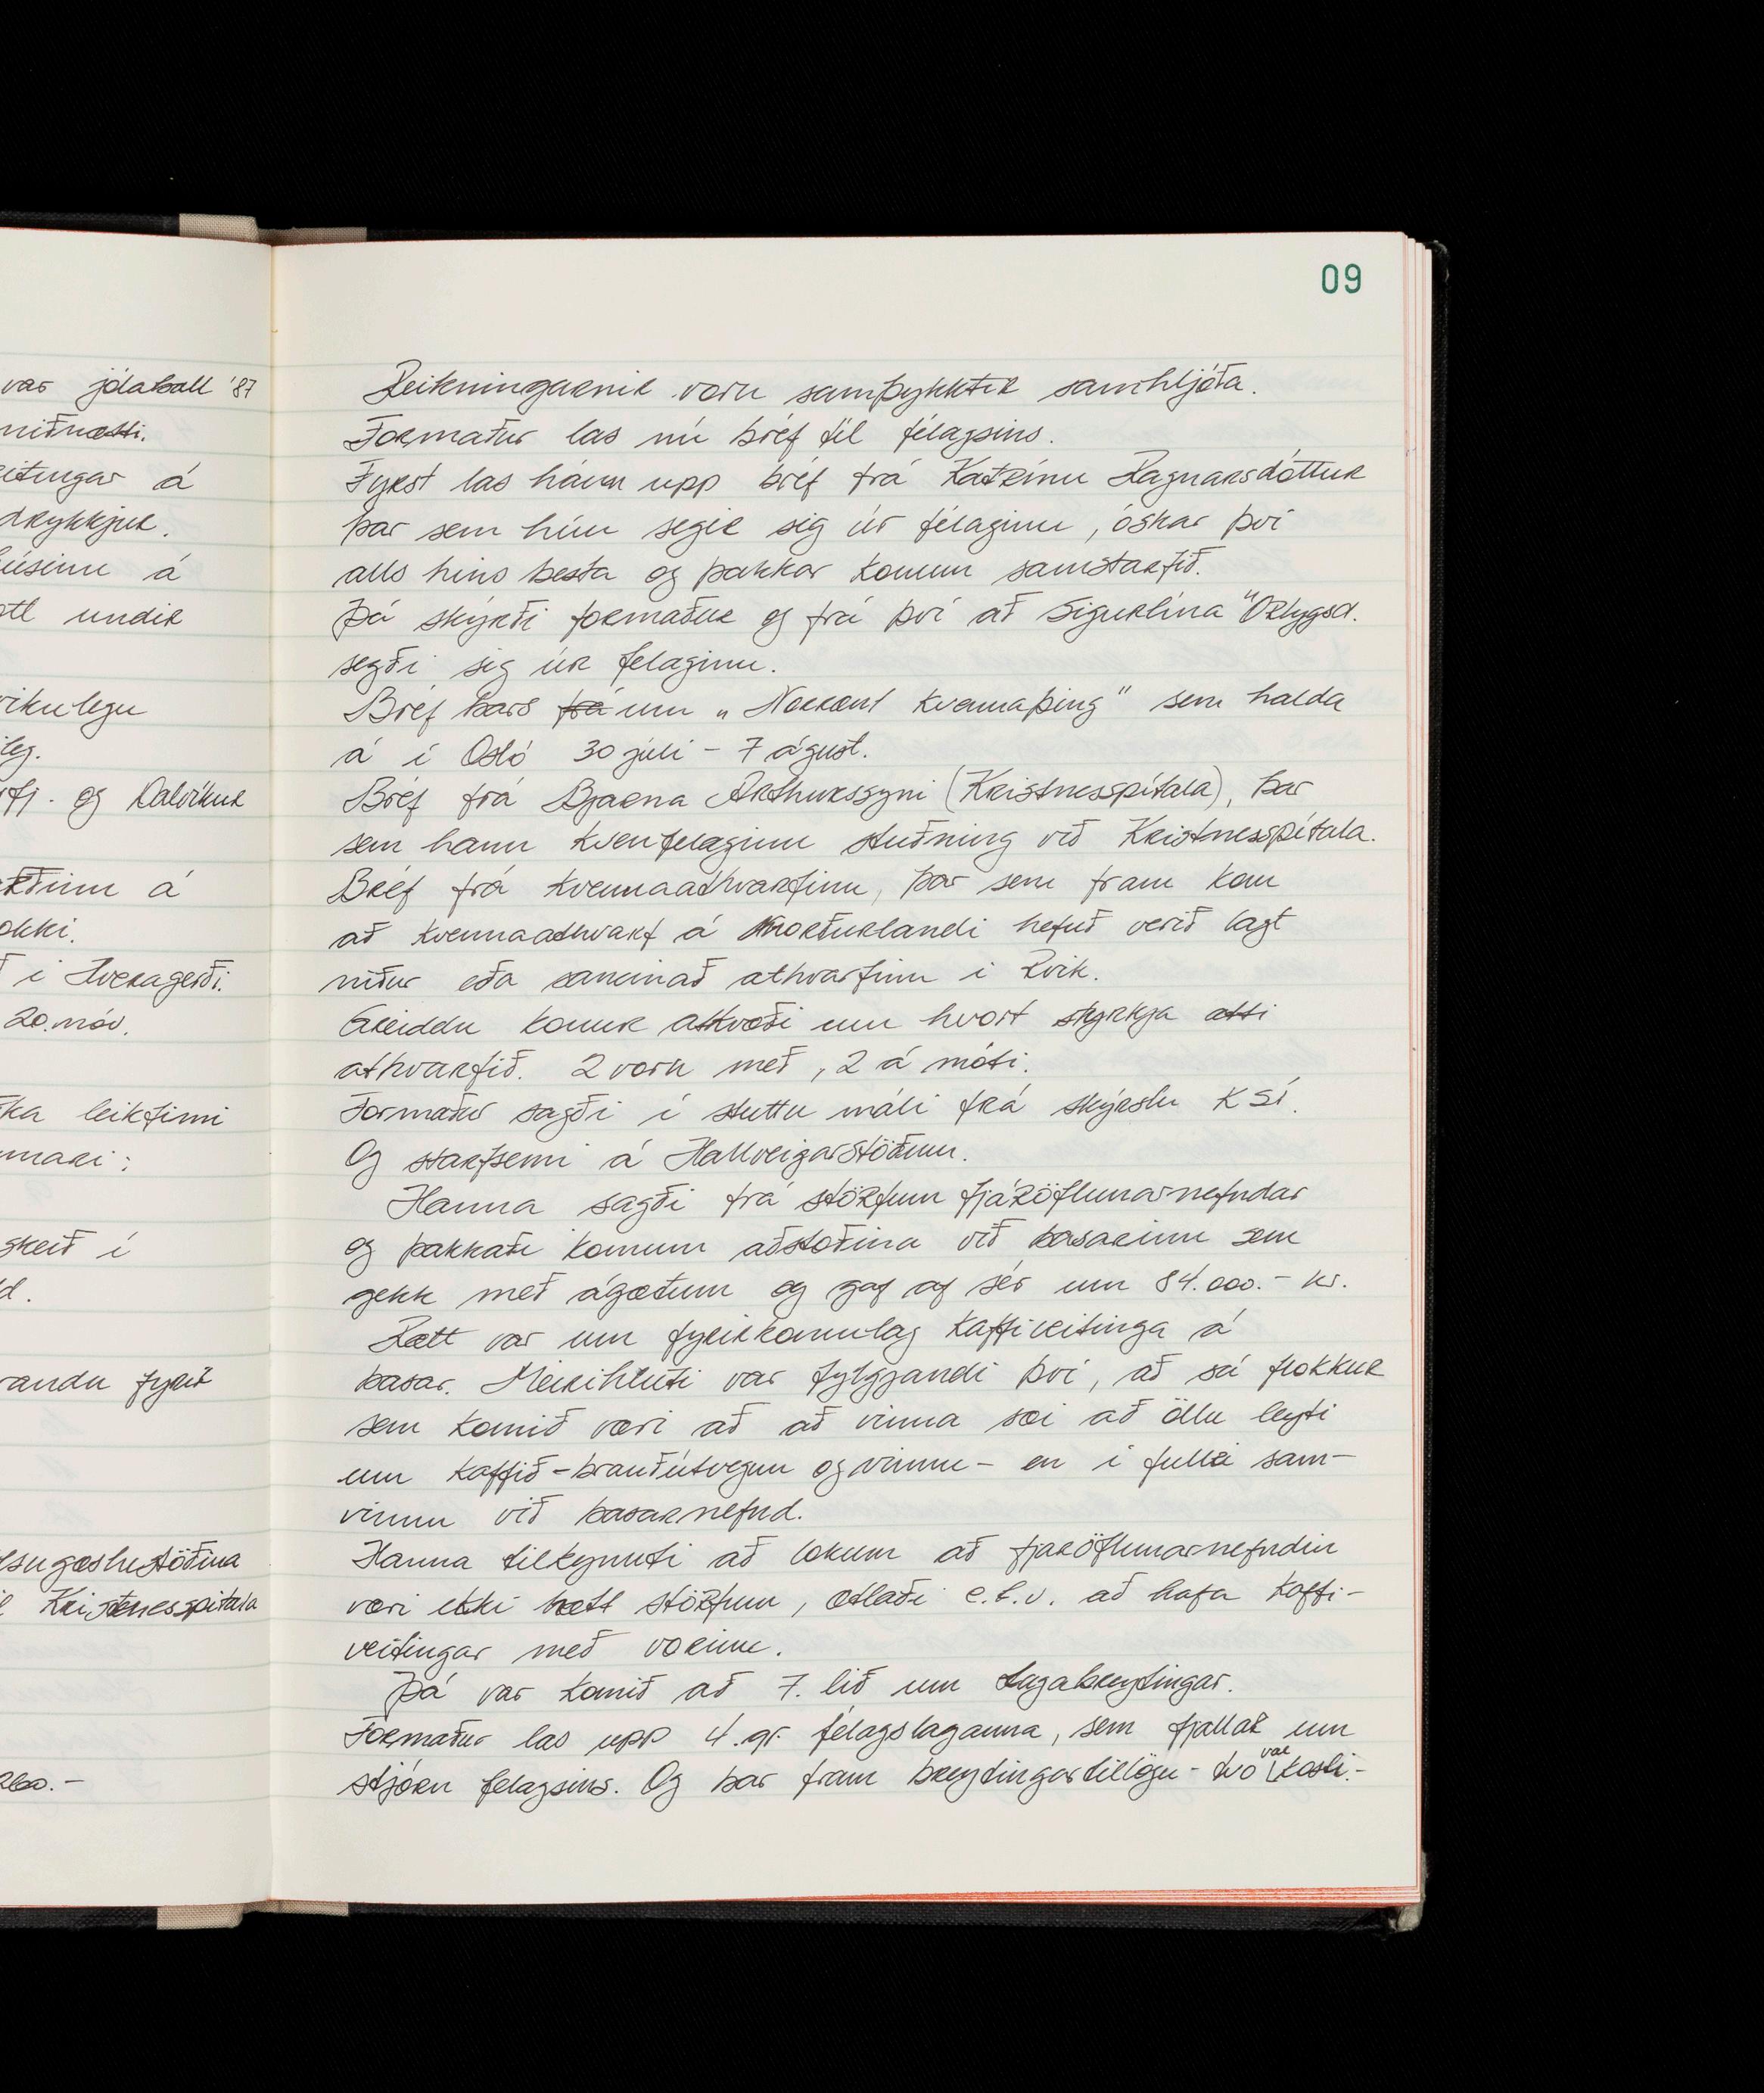 09
var jólaball '87
miðnætti.
eitingar á
drykkjur.
úsinu á
ott undir
vikulegu
leg.
rfj. og Dalvíkur
á
okki.
i Hveragerði.
20. nóv.
ka leikfimi
nnari:
skeið í
d.
randu fyrir
Kristnesspítala
Reikningarnir voru samþykktir samhljóða.
Formaður las nú bréf til félagsins.
Fyrst las hún upp bréf frá Katrínu Ragnarsdóttur
þar sem hún segir sig úr félaginu, óskar því
alls hins besta og þakkar konum samstarfið.
Þá skýrði formaður og frá því að Sigurlína Örlygsd.
segði sig úr felaginu.
Bréf bars frá um „Norrænt kvennaþing" sem halda
á í Osló 30 júli - 7 ágúst.
Bréf frá Bjarna Arthurssyni (Kristnesspítala), þar
sem hann kvenfelaginu stuðning við Kristnesspítala.
Bréf frá kvennaathvarfinu, þar sem fram kom
að kvennaathvarf á Norðurlandi hefuð verið lagt
niður eða sameinað athvarfinu i Rvik.
Greiddu konur atkvæði um hvort styrkja ætti
athvarfið. 2 voru með, 2 á móti.
Formaður sagði í stuttu máli frá skýrslu KSÍ.
Og starfsemi á Hallveigarstöðum.
Hanna sagði frá störfum fjáröflunarnefndar
og þakkaði konum aðstoðina við basarinn sem
gekk með ágætum og gaf af sér um 84.000.- kr.
Rætt var um fyrirkomulag kaffiveitinga á
basar. Meirihluti var fylgjandi því, að sá flokkur
sem komið væri að að vinna sæi að öllu leyti
um kaffið - brauðútvegun og vinnu - en i fullri sam-
vinnu við basarnefnd.
Hanna tilkynnti að lokum að fjaröflunarnefndin
væri ekki hætt störfum, ætlaði e.t.v. að hafa kaffi-
veitingar með vorinu.
Þá var komið að 7. lið um lagabreytingar.
Formaður las upp 4. gr. félagslaganna, sem fjallar um
stjórn felagsins. Og bar fram breytingartillögu - tvo val kosti. -